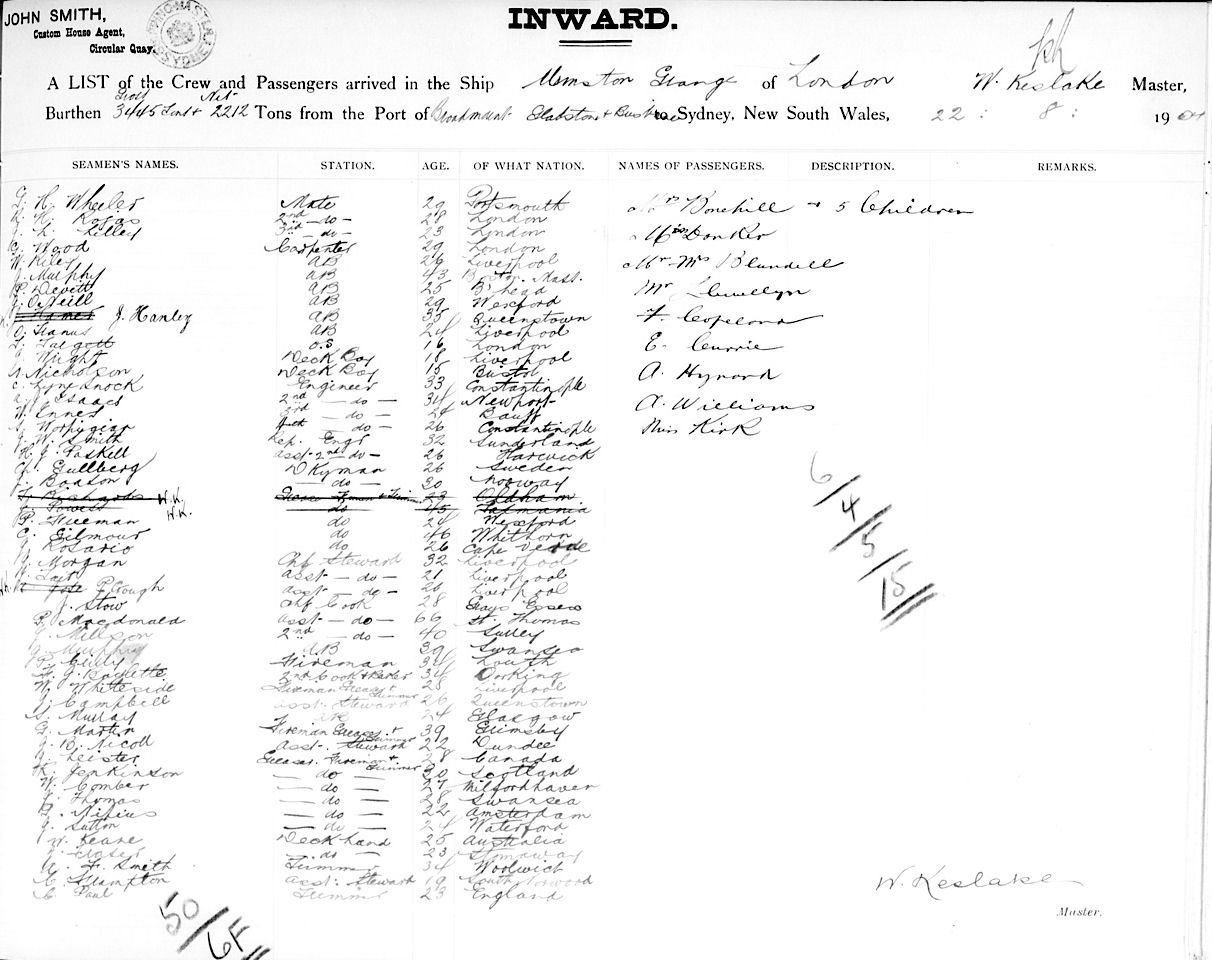 JOHN SMITH,
Custom House Agent,
Circular Quay.
INWARD.
A LIST of the Crew and Passengers arrived in the Ship Grange of London W. Keslake Master,
Burthen 3445 Gross 2212 Net Tons from the Port of to Sydney, New South Wales, 22 : 8 : 190
SEAMEN'S NAMES. STATION. AGE. OF WHAT NATION. NAMES OF PASSENGERS. DESCRIPTION. REMARKS.
G. H. Wheeler Mate 29 Portsmouth Mrs Bonehill + 5 Children
2nd - do - 28 London
Lilley 3rd - do - 23 London Donker
G. Wood Carpenter 29 London
W. Riley AB 26 Liverpool Mr Mrs Blundell
J. Murphy AB 43 Boston, Mass.
P. Devett AB 25 B'head Mr Llewellyn
J. O'Neill AB 29 Wexford
J. Hanley AB 35 Queenstown F. Copeland
AB 24 Liverpool
O.S 16 London E. Currie
Wright Deck Boy 18 Liverpool
Nicholson Deck Boy 15 Bristol A. Hynard
Engineer 33 Constantinople
Isaacs 2nd - do - 34 Newport A. Williams
W. Innes 3rd - do - 24 Banff
4th - do - 26 Constantinople Miss Kirk
J. W. Smith Ref. Engr 32 Sunderland
H. J. Paskell asst 2nd - do - 26 Harwich
Ch. Gullberg Dkyman 26 Sweden
J. Boason - do - 30 Norway
F. Richards W.K. 23 Oldham
Powell W.K. do 45 Tasmania
P. Freeman do 24 Wexford
C. Gilmour do 46 Whithorn
Rosario do 26 Cape Verde
Morgan Chf Steward 32 Liverpool
Tait asst - do - 21 Liverpool
P. Crough asst - do - 20 Liverpool
J. Stow Chf Cook 28 Grays Essex
P. Macdonald asst - do - 66 St. Thomas
Millson 2nd - do - 40 Surrey
Murphy AB 39 Swansea
P. Gilly Fireman 34 Louth
F. J. 2nd Cook & Baker 34 Dorking
W. Whiteside Fireman Greaser & Trimmer 28 Liverpool
J. Campbell asst. Steward 26 Queenstown
Murray AB 24 Glasgow
G. Martin Fireman Greaser & Trimmer 39 Grimsby
J. B. Nicoll asst. Steward 22 Dundee
Leister Greaser Fireman & Trimmer 28 Canada
Jenkinson - do - 30 Scotland
W. Comber - do - 27 Milfordhaven
Thomas - do - 28 Swansea
- do - 22 Amsterdam
J. Sutton - do - 24 Waterford
W. Keane Deckhand 25 Australia
- do - 23 Stornaway
A. F. Smith Trimmer 34 Woolwich
C. Hampton asst. Steward 19 South Norwood
C. Paul Trimmer 23 England
6/4/5/15
W. Keslake
Master.
50/6F